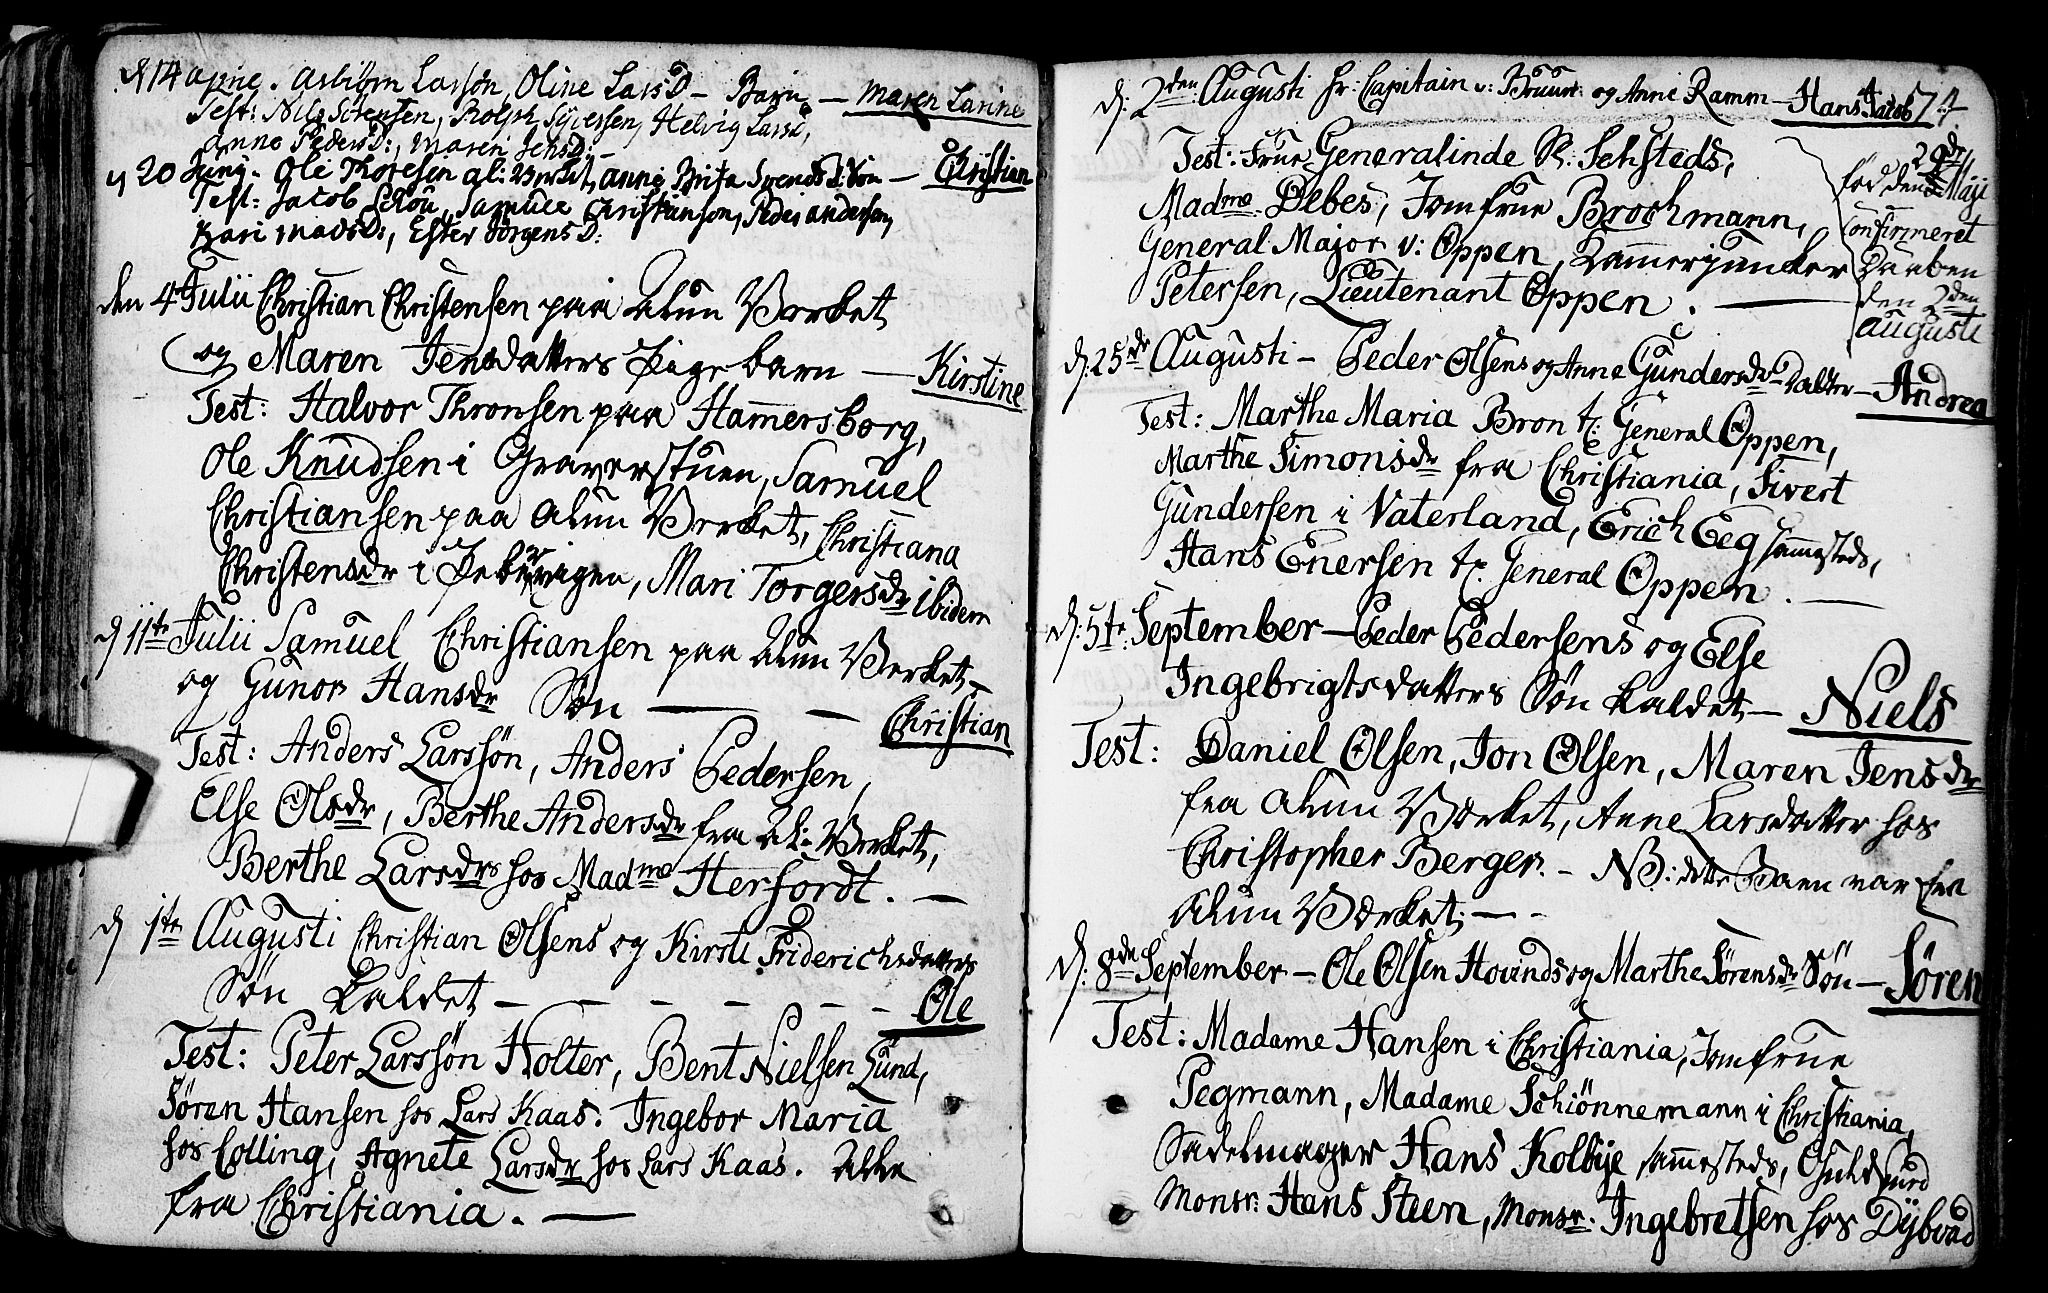 d 14 Asbiörn Larsön, Oline LarsD – Barn – Maren Larine
Test: Nils Sörensen, Rolph Syversen, Helvig LarsD,
Anne PedersD:, Maren JensD: –
d 20 Junj. Ole Thoresen al: Værket, Anne Brita SvendsD: Sön – Christian
Test: Jacob Schou, Samuel Christianson, Peder Andersen,
Kari MadsD:, Ester JörgensD:
den 4 Julii Christian Christensen paa Alun Værket
og Maren Jensdatters Pigebarn – Kirstine
Test: Halvor Thronsen paa Hamersborg,
Ole Knudsen i Graverstuen, Samuel
Christiansen paa Alun Værket, Christiana
Christensdr i Pebervigen, Mari Torgersdr ibidem
d 11te Julii Samuel Christiansen paa Alun Værket
og Gunor Hansdr Søn – – Christian
Test: Anders Larssön, Anders Pedersen,
Else Olsdr, Berthe Andersdr fra Al: Værket,
Berthe Larsdrs hos Madme Herfordt. –
d 1te Augusti Christian Olsens og Kirsti Friderichsdatters
Søn kaldet – – – – – Ole
Test: Peter Larssön Holter, Bent Nielsen Lund,
Sören Hansen hos Lars Kaas. Ingebor Maria
hos Colling, Agnete Larsdr hos Lars Kaas. Alle
fra Christiania. –
d: 2den Augusti Hr: Capitain v: Bruun og Anne Ramm – Hans Jacob 574
Test: Frue Generalinde R: Sehsteds,
Madme Debes, Jomfrue Brochmann,
General Major v: Oppen, Kamerjunker
Petersen, Lieutenant Oppen. –
fød den 29de Maji
Confirmeret
Daaben
den 2den
Augusti
d: 25de Augusti – Peder Olsens og Anne Gundersdr Datter – Andrea
Test: Marthe Maria Bron t: General Oppen,
Marthe Simonsdr fra Christiania, Sivert
Gundersen i Vaterland, Erich Eeg sammesteds,
Hans Enersen t: General Oppen. –
d: 5te September – Peder Pedersens og Else
Ingebrigtsdatters Søn kaldet – Niels
Test: Daniel Olsen, Jon Olsen, Maren Jensdr
fra Alun Værket, Anne Larsdatter hos
Christopher Berger. – NB: dette Barn var fra
Alun Værket. – -
d: 8de September – Ole Olsen Hovinds og Marthe Sörensdr Sön – Sören
Test: Madame Hansen i Christiania, Jomfrue
Pegmann, Madame Schiönnemann i Christiania,
Sadelmager Hans Kolbye sammesteds, Guldsmed
Monsr: Hans Steen, Monsr. Ingebretsen hos Dybvad